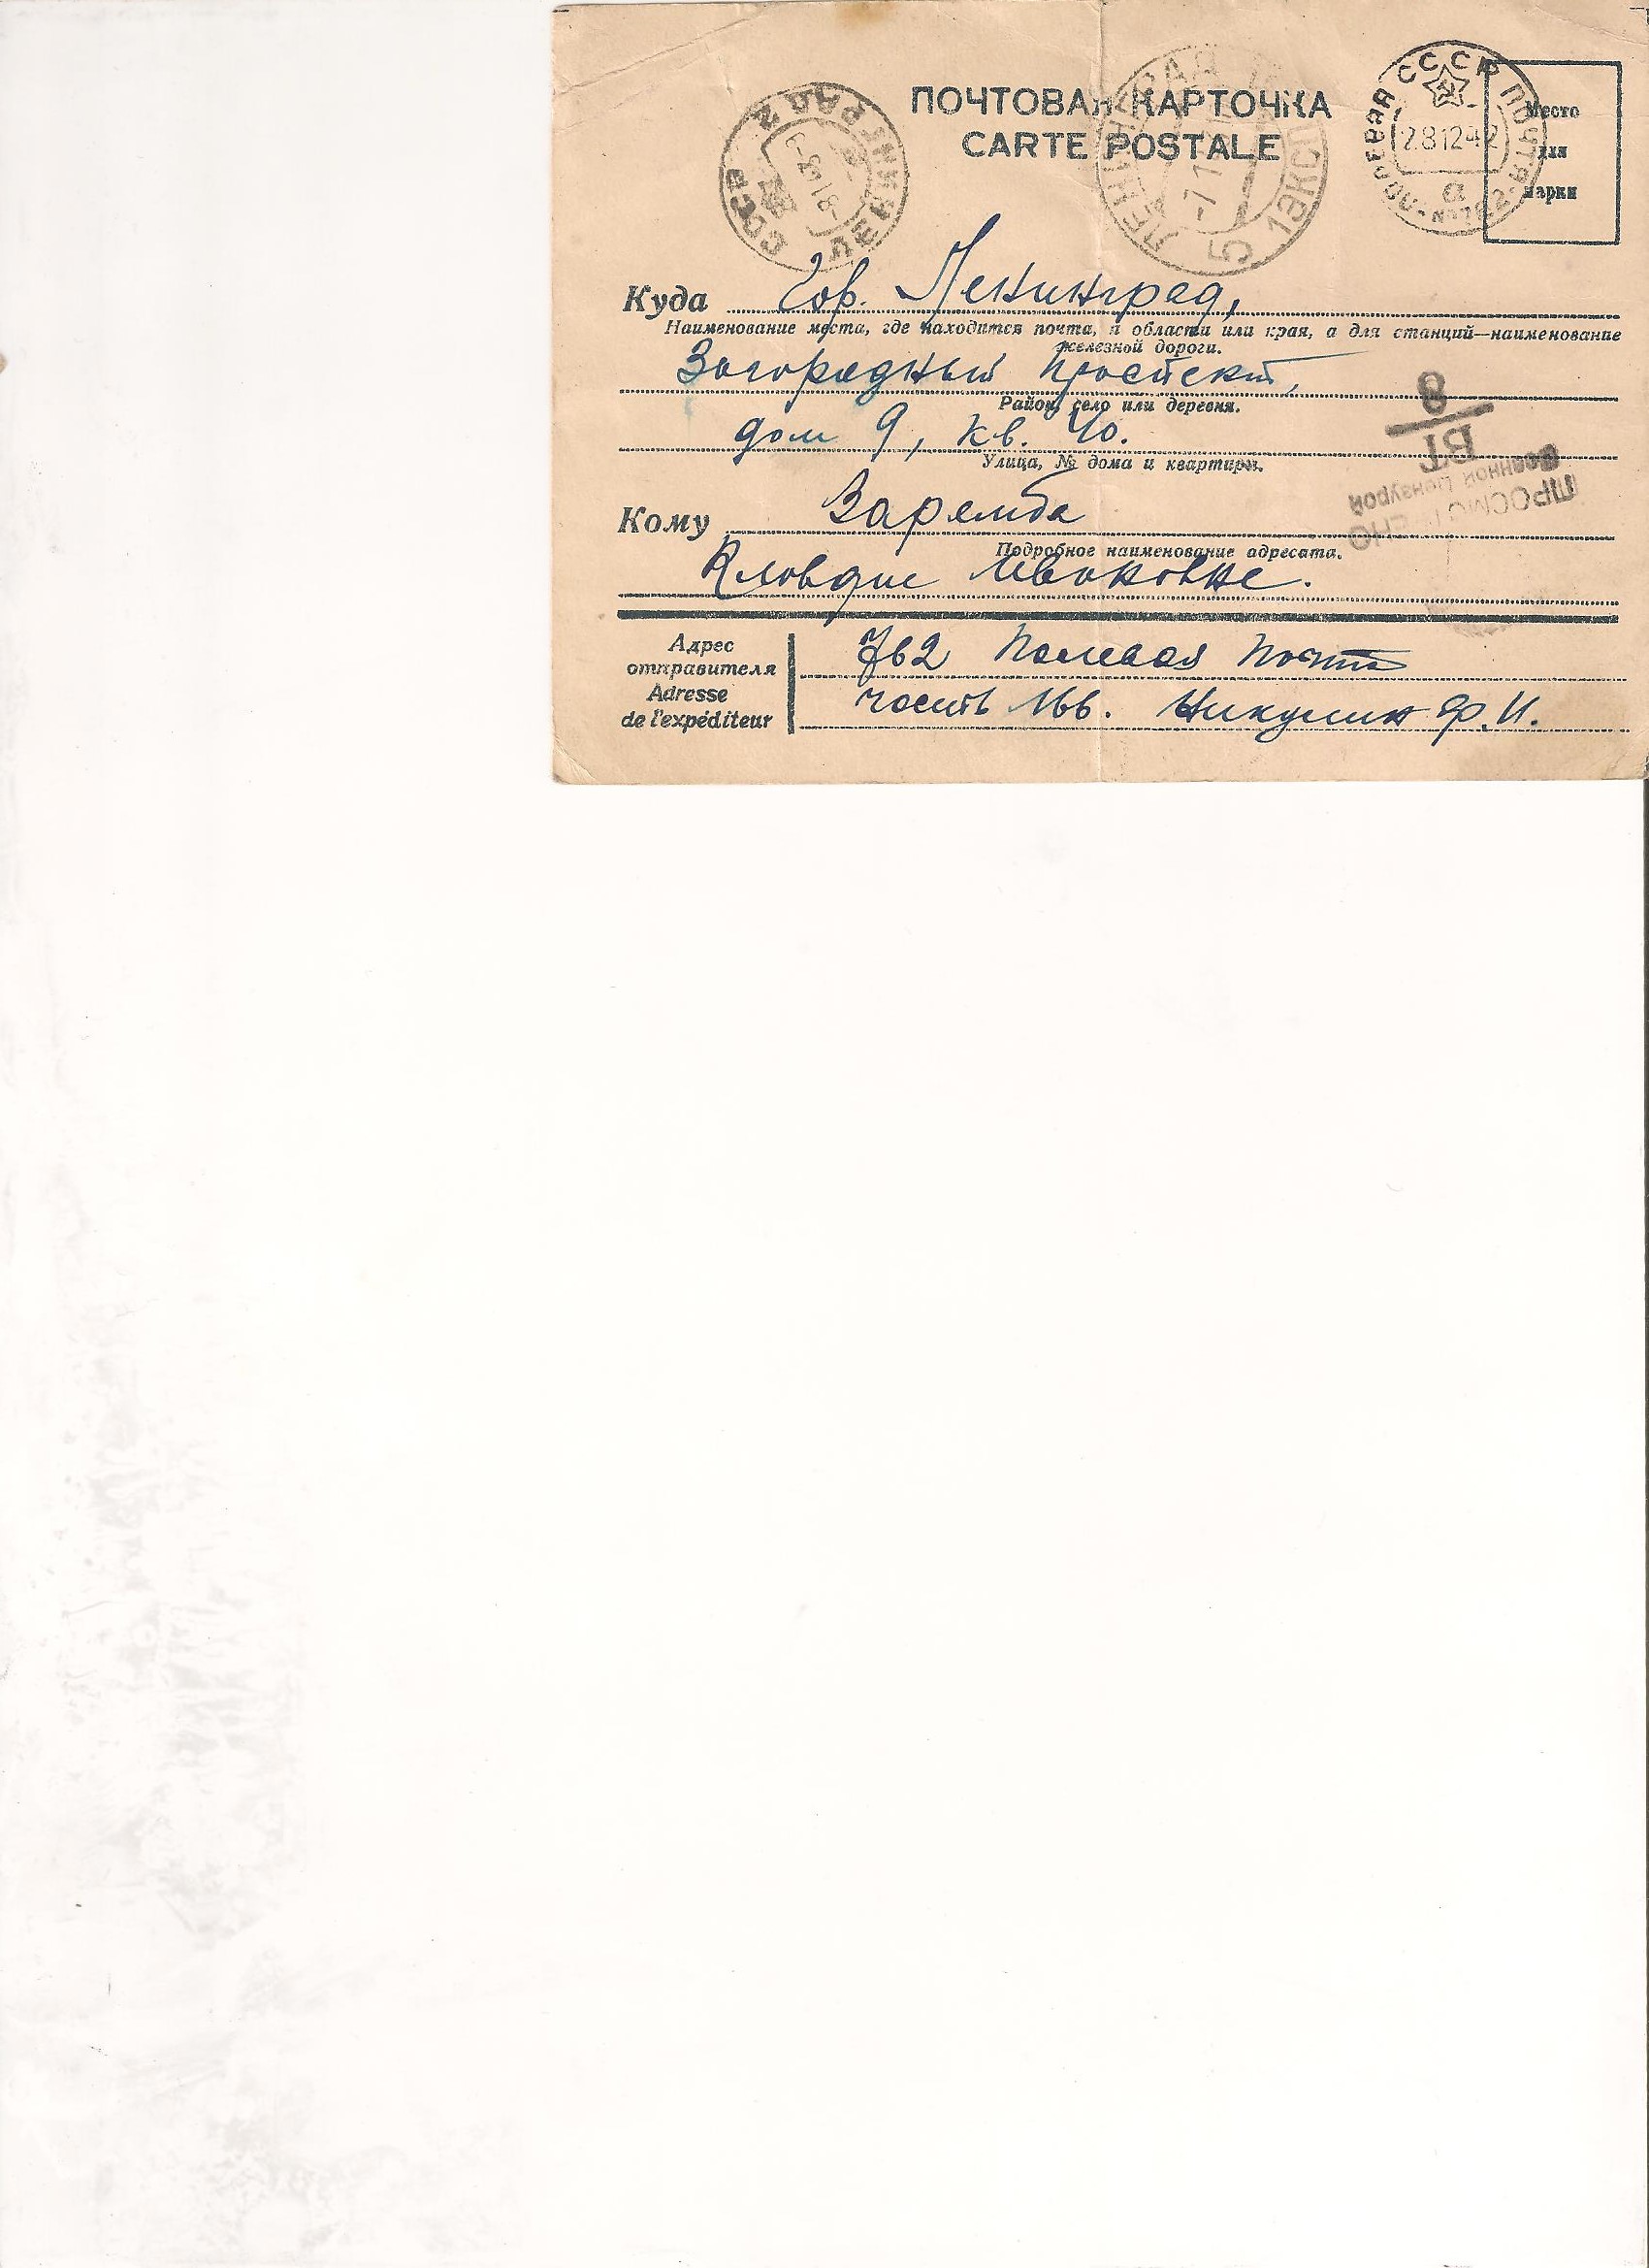 ПОЧТОВАЯ КАРТОЧКА
CARTE POSTALE
ЛЕНИНГРАД 2
СССР
ЛЕНИНГРАД
5 1ЭКСП
СССР ПОЧТА
ПОЛЕВАЯ
281242
а
Место
для
марки
Куда Гор. Ленинград,
Наименование места, где находится почта, и области или края, а для станций—наименование
железной дороги.
Загородный проспект,
Район, село или деревня.
дом 9, кв. 40.
Улица, № дома и квартиры.
ПРОСМОТРЕНО
Военной Цензурой
ВТ
8
Кому Заремба
Подробное наименование адресата.
Клавдие Ивановне.
Адрес
отправителя
Adresse
de l'expéditeur
762 Полевая Почта
часть 166. Никулин Ф. И.